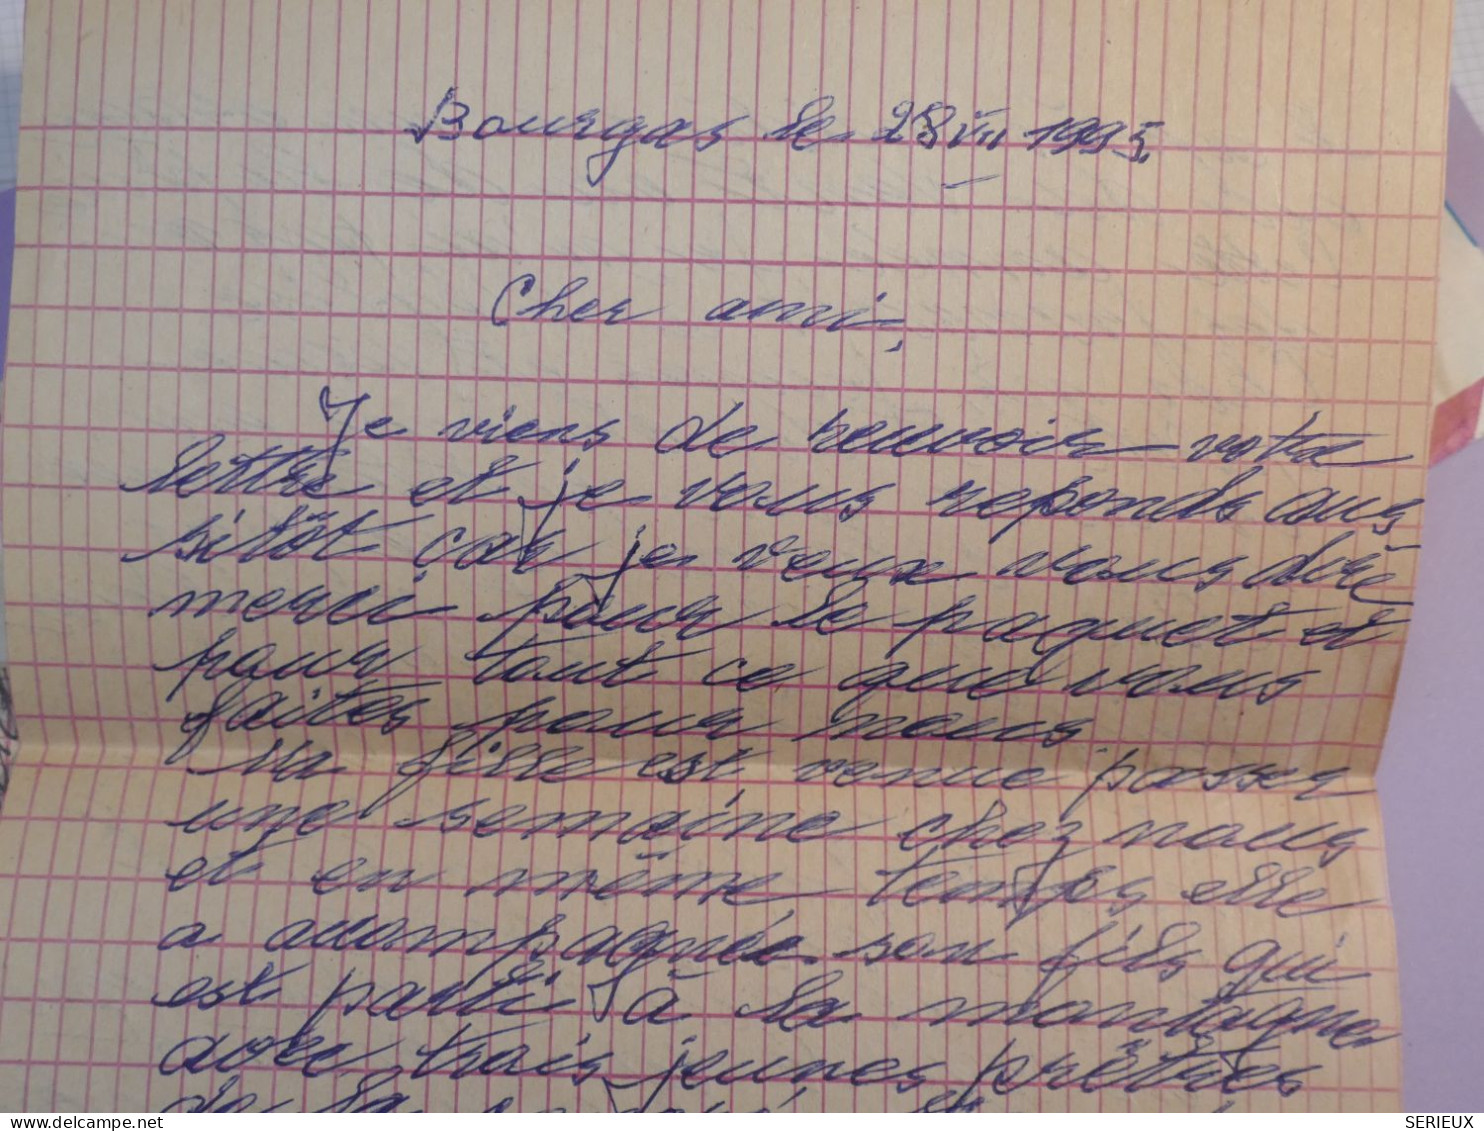 Bourgas le 28 VII 1995
Cher ami,
Je viens de recevoir votre
lettre et je vous reponds aus
sitôt car je veux vous dire
merci pour le paquet et
pour tout ce que vous
faites pour nous.
Ma fille est venue passer
une semaine chez nous
et en même temps elle
a accompagnée son fils qui
est parti à la montagne
avec trois jeunes prêtres
de la
www.delcampe.net
SERIEUX